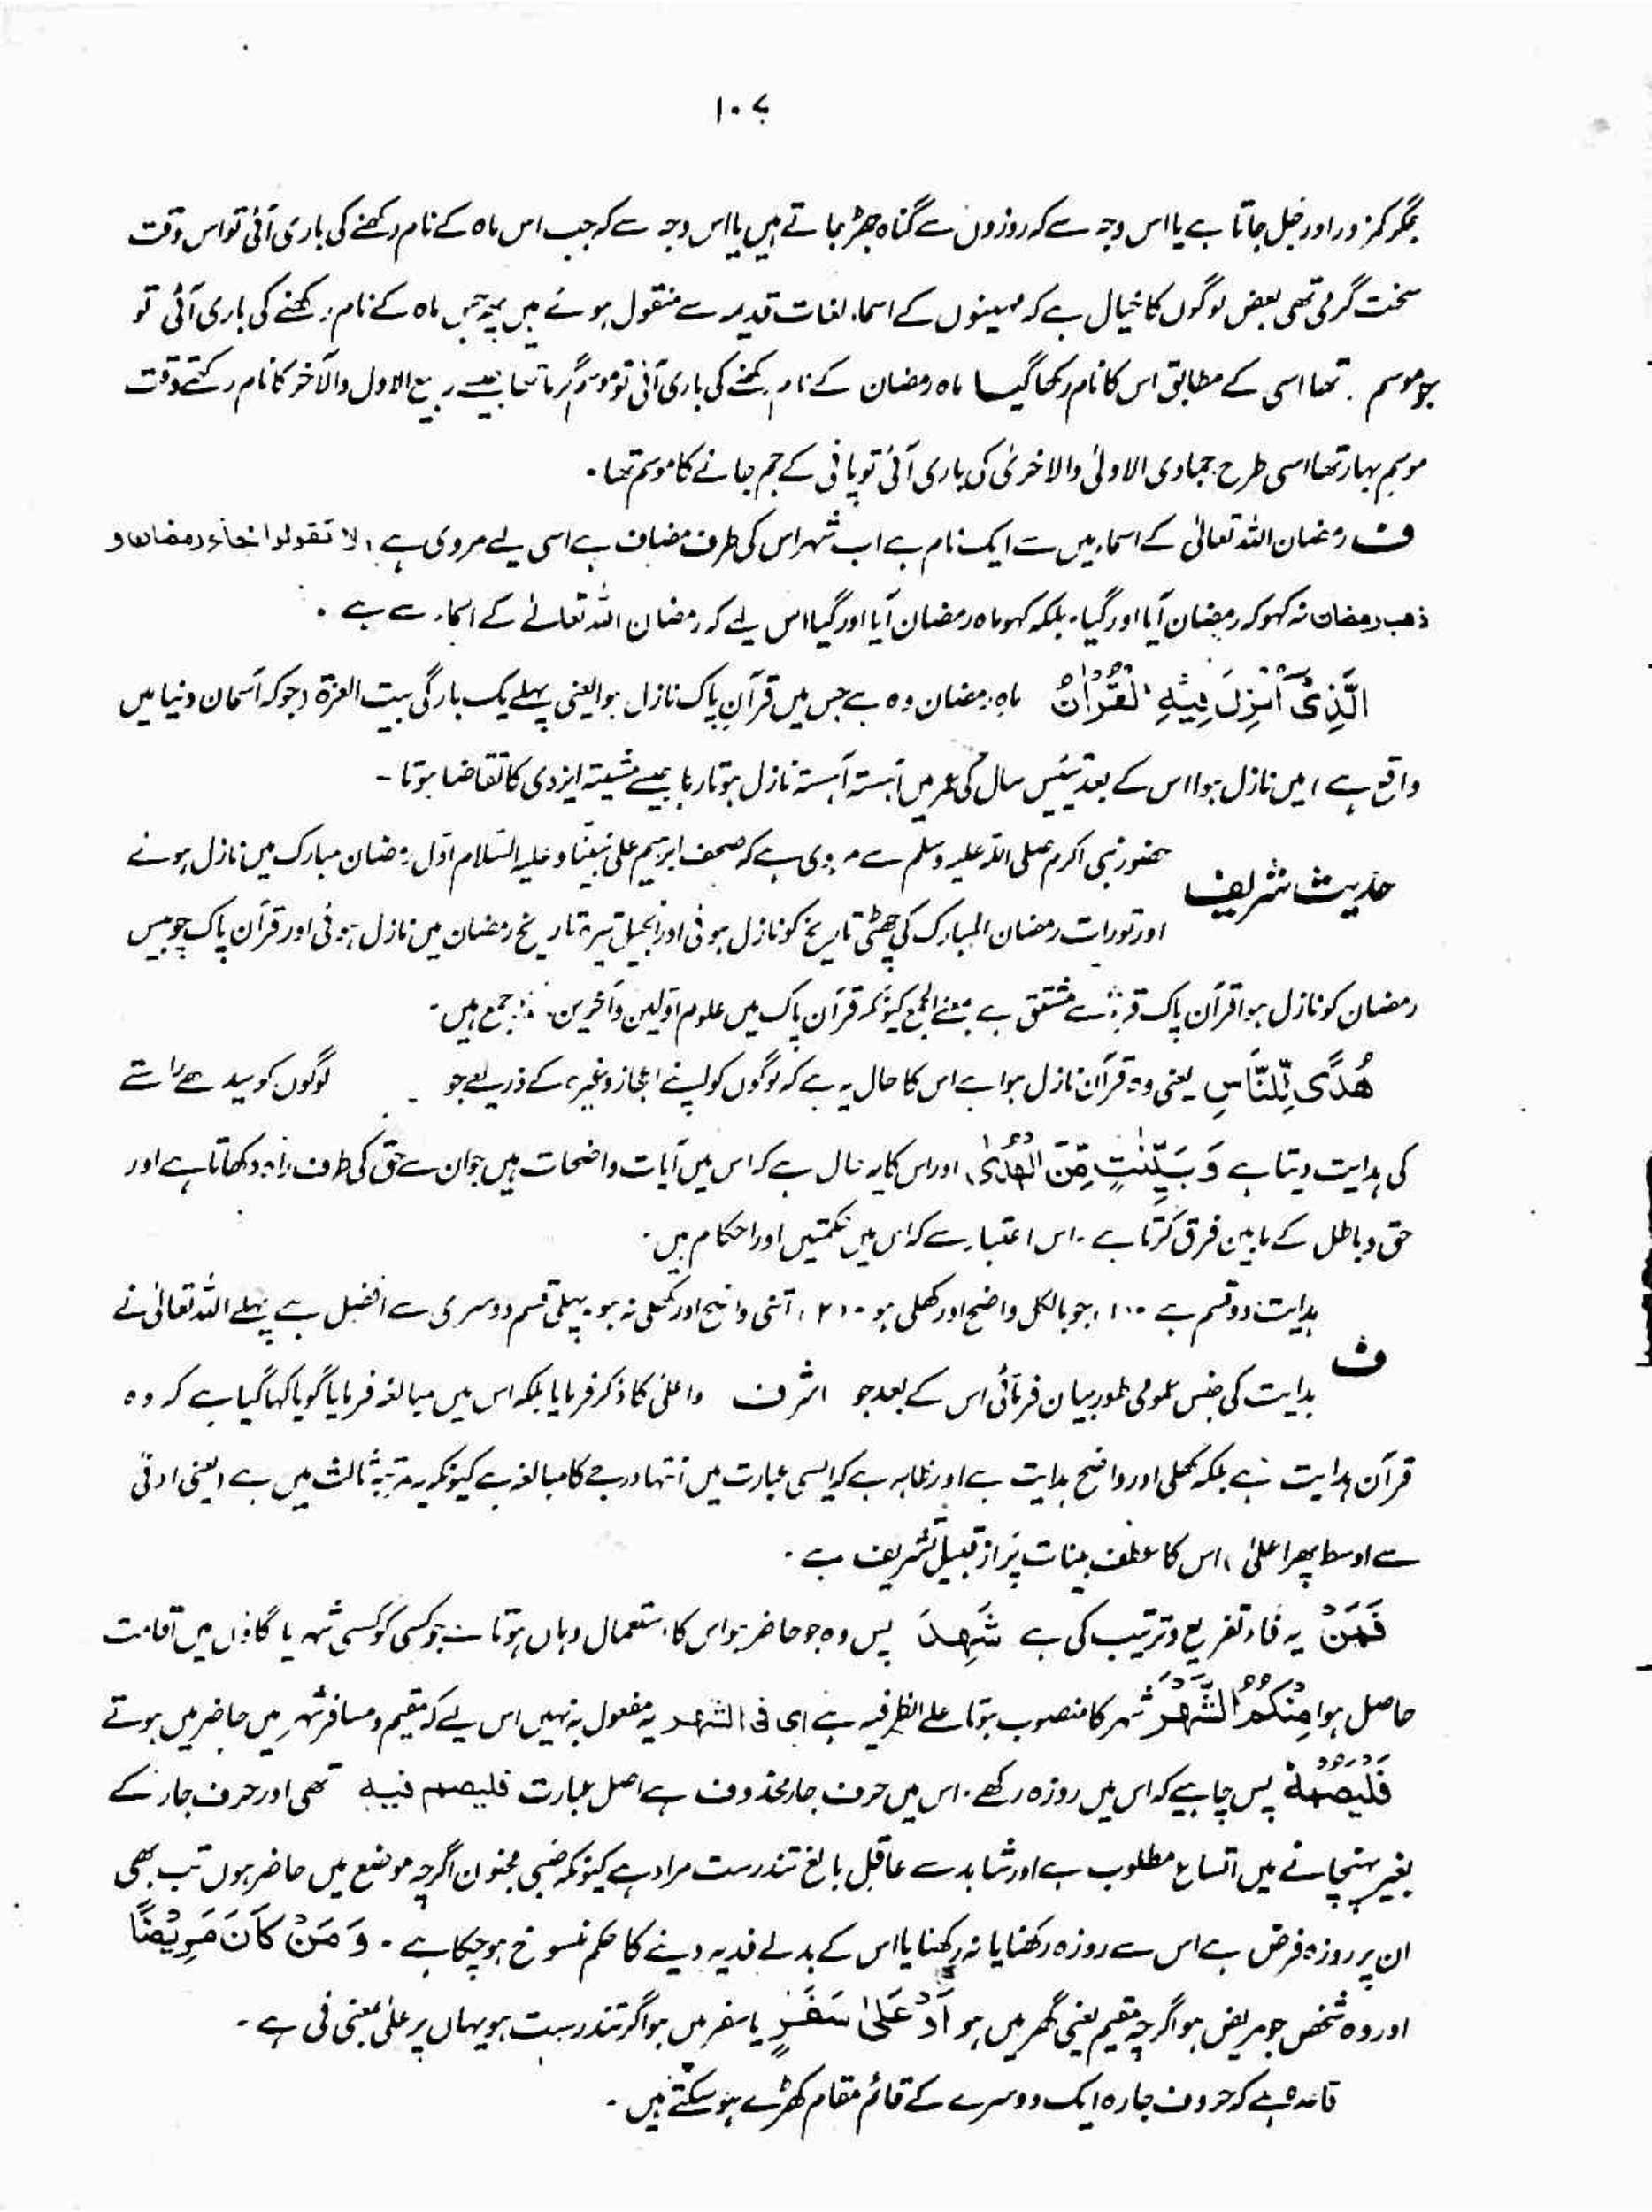 ۱۰۷
جگر کمزور اور جل جاتا ہے یا اس وجہ سے کہ روزوں سے گناہ جھڑ جاتے ہیں یا اس وجہ سے کہ جب اس ماہ کے نام رکھنے کی باری آئی تو اس وقت
سخت گرمی تھی بعض لوگوں کا خیال ہے کہ مہینوں کے اسماء لغات قدیمہ سے منقول ہوئے ہیں پھر جس ماہ کے نام رکھنے کی باری آئی تو
جو موسم تھا اسی کے مطابق اس کا نام رکھا گیا ماہ رمضان کے نام رکھنے کی باری آئی تو موسم گرما تھا جیسے ربیع الاول والآخر کا نام رکھتے وقت
موسم بہار تھا اسی طرح جمادی الاولیٰ والاخریٰ کی باری آئی تو پانی کے جم جانے کا موسم تھا۔
ف رمضان اللہ تعالیٰ کے اسماء میں سے ایک نام ہے اب شہر اس کی طرف مضاف ہے اسی لیے مروی ہے، لا تقولوا جاء رمضان و
ذھب رمضان نہ کہو کہ رمضان آیا اور گیا۔ بلکہ کہو ماہ رمضان آیا اور گیا اس لیے کہ رمضان اللہ تعالےٰ کے اسماء سے ہے ۔
الَّذِیْٓ اُنْزِلَ فِیْہِ الْقُرْاٰنُ ماہ رمضان وہ ہے جس میں قرآن پاک نازل ہوا یعنی پہلے یک بارگی بیت العزۃ (جو کہ آسمان دنیا میں
واقع ہے) میں نازل ہوا اس کے بعد تیئیس سال کی عمر میں آہستہ آہستہ نازل ہوتا رہا جیسے مشیتہ ایزدی کا تقاضا ہوتا ۔
حدیث شریف
حضور نبی اکرم صلی اللہ علیہ وسلم سے مروی ہے کہ صحف ابراہیم علیٰ نبینا و علیہ السلام اوّل رمضان مبارک میں نازل ہوئے
اور تورات رمضان المبارک کی چھٹی تاریخ کو نازل ہوئی اور انجیل تیرہ تاریخ رمضان میں نازل ہوئی اور قرآن پاک چوبیس
رمضان کو نازل ہوا قرآن پاک سے مشتق ہے بمعنے الجمع کیونکہ قرآن پاک میں علوم اولین و آخرین جمع ہیں۔
ھُدًی لِّلنَّاسِ یعنی وہ قرآن نازل ہوا ہے اس کا حال یہ ہے کہ لوگوں کو اپنے اعجاز وغیرہ کے ذریعے جو لوگوں کو سیدھے راستے
کی ہدایت دیتا ہے وَ بَیِّنٰتٍ مِّنَ الْھُدٰی اور اس کا یہ حال ہے کہ اس میں آیات واضحات ہیں جو ان سے حق کی طرف راہ دکھاتا ہے اور
حق و باطل کے مابین فرق کرتا ہے۔ اس اعتبار سے کہ اس میں حکمتیں اور احکام ہیں۔
ہدایت دو قسم ہے ۔ ۱ ، جو بالکل واضح اور کھلی ہو ۔ ۲ ، اتنی واضح اور کھلی نہ ہو۔ پہلی قسم دوسری سے افضل ہے پہلے اللہ تعالیٰ نے
ف
ہدایت کی جنس عمومی طور بیان فرمائی اس کے بعد جو اشرف و اعلیٰ کا ذکر فرمایا بلکہ اس میں مبالغہ فرمایا گویا کہا گیا ہے کہ وہ
قرآن ہدایت ہے بلکہ کھلی اور واضح ہدایت ہے اور ظاہر ہے کہ ایسی عبارت میں انتہا درجے کا مبالغہ ہے کیونکہ یہ مرتبہ ثالث میں ہے (یعنی ادنیٰ
سے اوسط پھر اعلیٰ) اس کا عطف بینات پر از قبیل تشریف ہے ۔
فَمَنْ یہ فاء تفریع و ترتیب کی ہے شَھِدَ پس وہ جو حاضر ہو اس کا استعمال وہاں ہوتا ہے جو کسی کو کسی شہر یا گاؤں میں اقامت
حاصل ہو مِنْکُمُ الشَّھْرَ شہر کا منصوب ہوتا علے الظرفیہ ہے ای فی الشھر یہ مفعول بہ نہیں اس لیے کہ مقیم و مسافر شہر میں حاضر ہیں ہوتے
فَلْیَصُمْہُ پس چاہیے کہ اس میں روزہ رکھے۔ اس میں حرف جار محذوف ہے اصل عبارت فلیصم فیہ تھی اور حرف جار کے
بغیر پہنچانے میں اتساع مطلوب ہے اور شاہد سے عاقل بالغ تندرست مراد ہے کیونکہ صبی مجنون اگرچہ موضع میں حاضر ہوں تب بھی
ان پر روزہ فرض ہے اس سے روزہ رکھنا یا نہ رکھنا یا اس کے بدلے فدیہ دینے کا حکم منسوخ ہو چکا ہے ۔ وَ مَنْ کَانَ مَرِیْضًا
اور وہ شخص جو مریض ہو اگرچہ مقیم یعنی گھر میں ہو اَوْ عَلٰی سَفَرٍ یا سفر میں ہو اگر تندرست ہو یہاں پر علیٰ بمعنی فی ہے ۔
قاعدہ ہے کہ حروف جارہ ایک دوسرے کے قائم مقام کھڑے ہو سکتے ہیں ۔